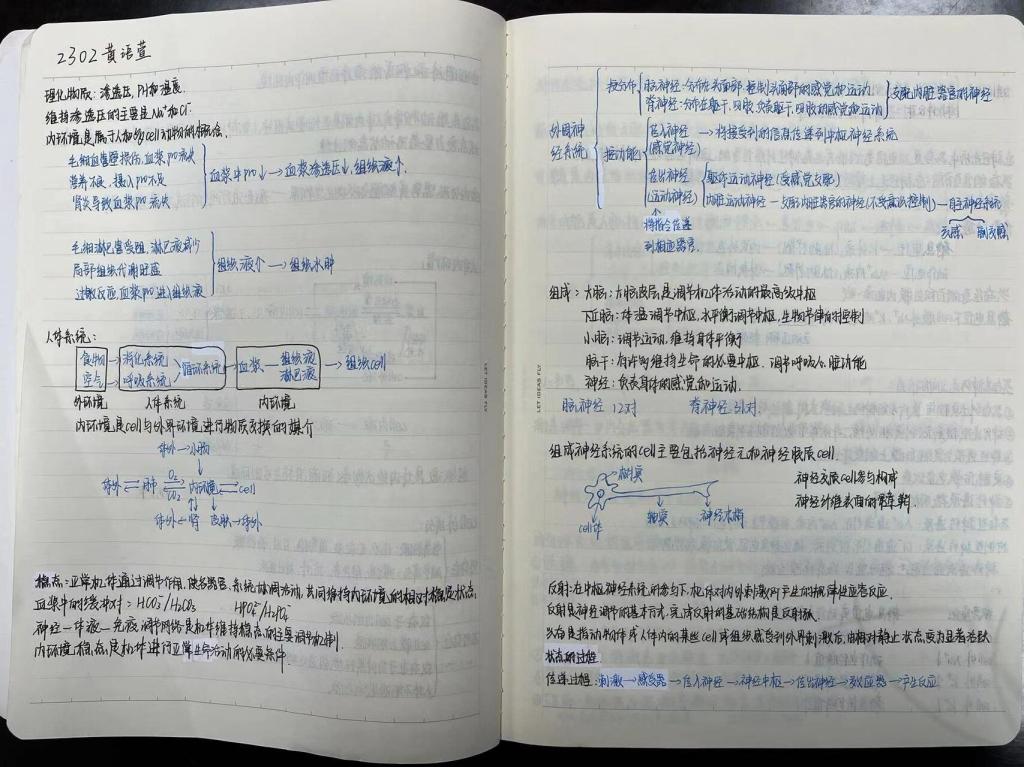 2302 黄语萱
理化性质：渗透压，PH和温度．
维持渗透压的主要是Na⁺和Cl⁻
内环境是属于人和多cell动物的概念．
毛细血管壁损伤，血浆pro流失
营养不良，摄入pro不足
肾炎导致血浆pro流失
血浆中pro↓→血浆渗透压↓，组织液↑．
毛细淋巴管受阻，淋巴液减少
局部组织代谢旺盛
过敏反应血浆pro进入组织液
组织液↑→组织水肿
人体系统：
食物 空气
消化系统 呼吸系统 循环系统
血浆 — 组织液 淋巴液
→ 组织cell
外环境 人体系统 内环境
内环境是cell与外界环境进行物质交换的媒介
体外→小肠
体外⇌肺 O₂ CO₂ 内环境⇌cell
体外←肾 皮肤→体外
稳态：正常机体通过调节作用，使各器官、系统协调活动，共同维持内环境的相对稳定状态
血浆中的缓冲对：HCO₃⁻/H₂CO₃ HPO₄²⁻/H₂PO₄⁻
神经—体液—免疫调节网络是机体维持稳态的主要调节机制
内环境稳态是机体进行正常生命活动的必要条件．
外周神经系统
按分布
脑神经：分布在头面部，控制头面部的感觉和运动．
脊神经：分布在躯干、四肢，负责躯干、四肢的感觉和运动
支配内脏器官的神经
按功能
传入神经（感觉神经）→将接受到的信息传递到中枢神经系统
传出神经（运动神经）
躯体运动神经（受意识支配）
内脏运动神经—支配内脏器官的神经（不受意识控制）—自主神经系统
交感 副交感
将指令传递
到相应器官．
组成：大脑：大脑皮层是调节机体活动的最高级中枢
下丘脑：体温调节中枢，水平衡调节中枢，生物节律的控制
小脑：调节运动，维持身体平衡
脑干：有许多维持生命的必要中枢，调节呼吸心脏功能
神经：负责身体的感觉和运动．
脑神经 12对 脊神经 31对．
组成神经系统的cell主要包括神经元和神经胶质cell．
树突
cell体
轴突
神经末梢
神经胶质cell参与构成
神经纤维表面的髓鞘．
反射：在中枢神经系统的参与下，机体对内外刺激所产生的规律性应答反应．
反射是神经调节的基本方式，完成反射的基础结构是反射弧．
兴奋是指动物体或人体内的某些cell或组织感受到外界刺激后，由相对静止状态变为显著活跃
状态的过程．
传递过程：刺激→感受器→传入神经→神经中枢→传出神经→效应器→产生反应